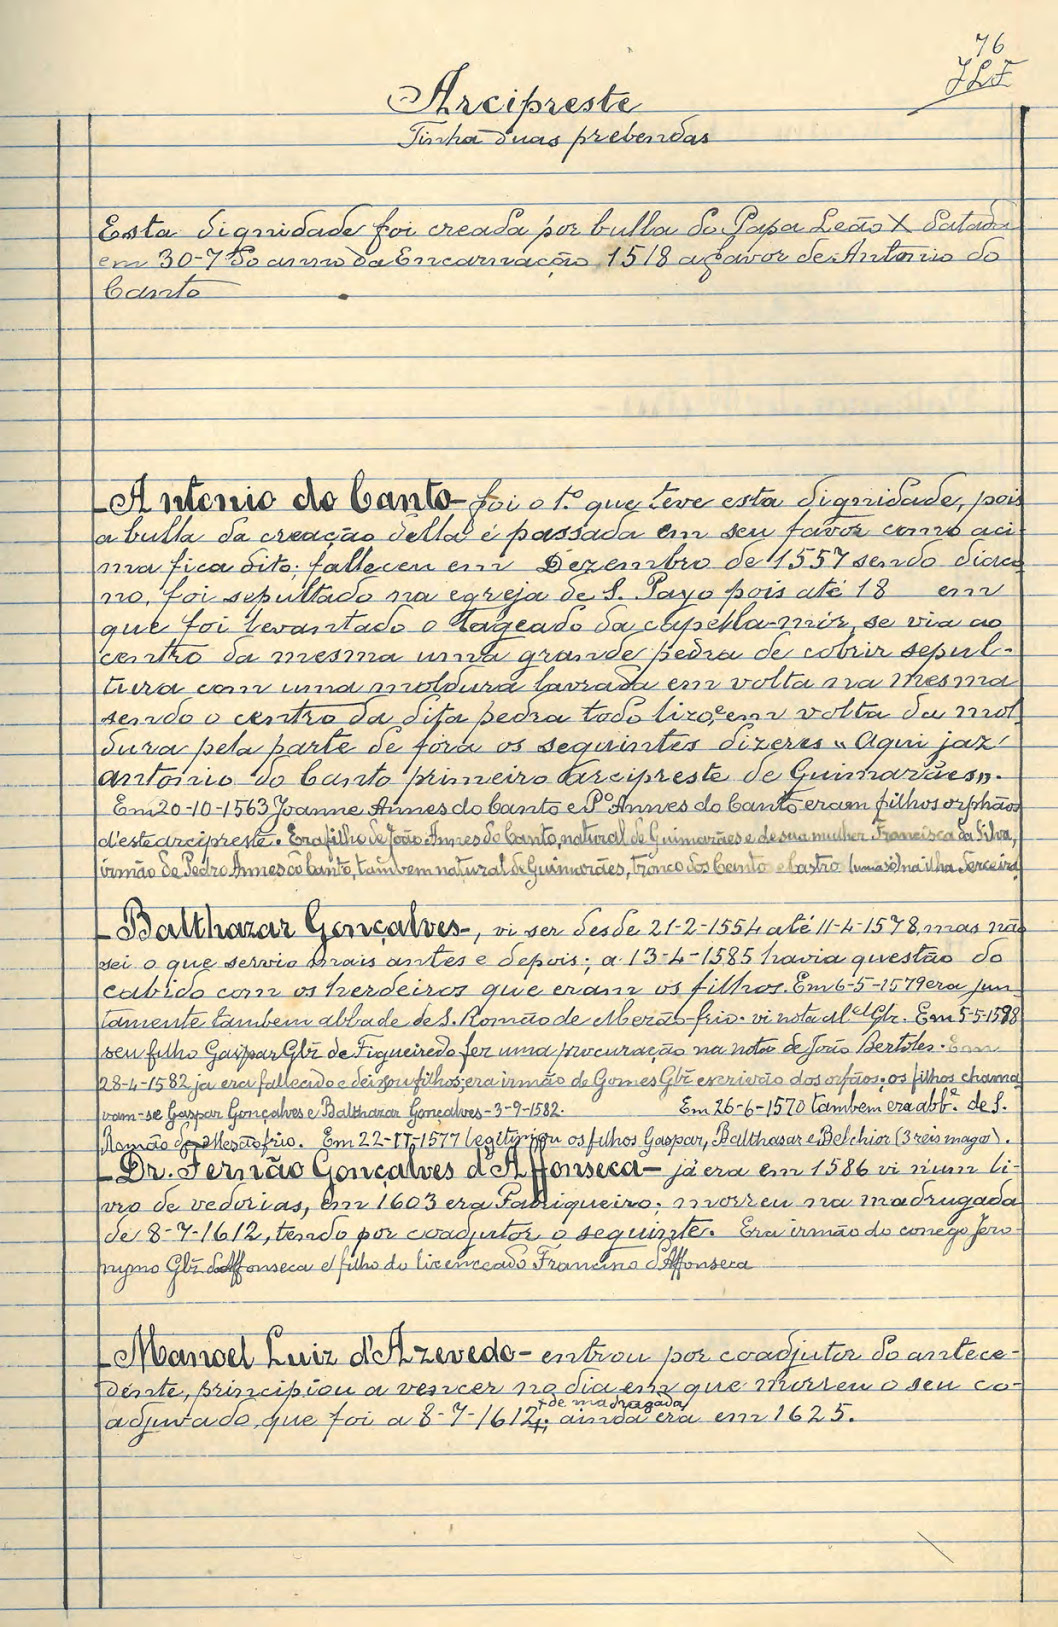 76
JLF
Arcipreste
Tinha duas prebendas
Esta dignidade foi creada por bulla do Papa Leão X datada
em 30-7 do anno da Encarnação 1518 a favor de Antonio do
Canto
Antonio do Canto - foi o 1.º que teve esta dignidade, pois
a bulla da creação della é passada em seu favor como aci-
ma fica dito; falleceu em Dezembro de 1557 sendo diaco
no, foi sepultado na egreja de S. Payo pois até 18 em
que foi levantado o lageado da capella-mór, se via ao
centro da mesma uma grande pedra de cobrir sepul-
tura com uma moldura lavrada em volta na mesma
sendo o centro da dita pedra todo lizo, e em volta da mol
dura pela parte de fora os seguintes dizeres "Aqui jaz
antonio do Canto primeiro arcipreste de Guimarães".
Em 20-10-1563 Joanne Annes do Canto e P.º Annes do Canto eram filhos orphãos
d'este arcipreste. Era filho de João Annes do Canto, natural de Guimarães e de sua mulher Francisca da Silva,
irmão de Pedro Annes do Canto, tambem natural de Guimarães, tronco dos Canto e Castro (uma só) na ilha Terceira
Balthazar Gonçalves -, vi ser desde 21-2-1554 até 11-4-1578, mas não
sei o que servio mais antes e depois; a 13-4-1585 havia questão do
cabido com os herdeiros que eram os filhos. Em 6-5-1579 era jun-
tamente tambem abbade de S. Romão de Mezão-frio. vi nota M.el Glz. Em 5-5-1598
seu filho Gaspar Glz de Figueiredo fez uma procuração na nota de João Bertoles. Em
28-4-1582 ja era fallecido e deixou filhos; era irmão de Gomes Glz escrivão dos orfãos; os filhos chama
vam-se Gaspar Gonçalves e Balthazar Gonçalves - 3-9-1582. Em 26-6-1570 tambem era abb.e de S.
Romão de Mesãofrio. Em 22-II-1577 legitimou os filhos Gaspar, Balthasar e Belchior (3 reis magos).
Dr. Fernão Gonçalves d'Affonseca - já era em 1586 vi n'um li-
vro de vedorias, em 1603 era Fabriqueiro; morreu na madrugada
de 8-7-1612, tendo por coadjutor o seguinte. Era irmão do conego Jero
nymo Glz d'Affonseca e filho do licenceado Francisco d'Affonseca
Manoel Luiz d'Azevedo - entrou por coadjutor do antece-
dente, principiou a vencer no dia em que morreu o seu co-
+ de madrugada
adjuvado, que foi a 8-7-1612+; ainda era em 1625.